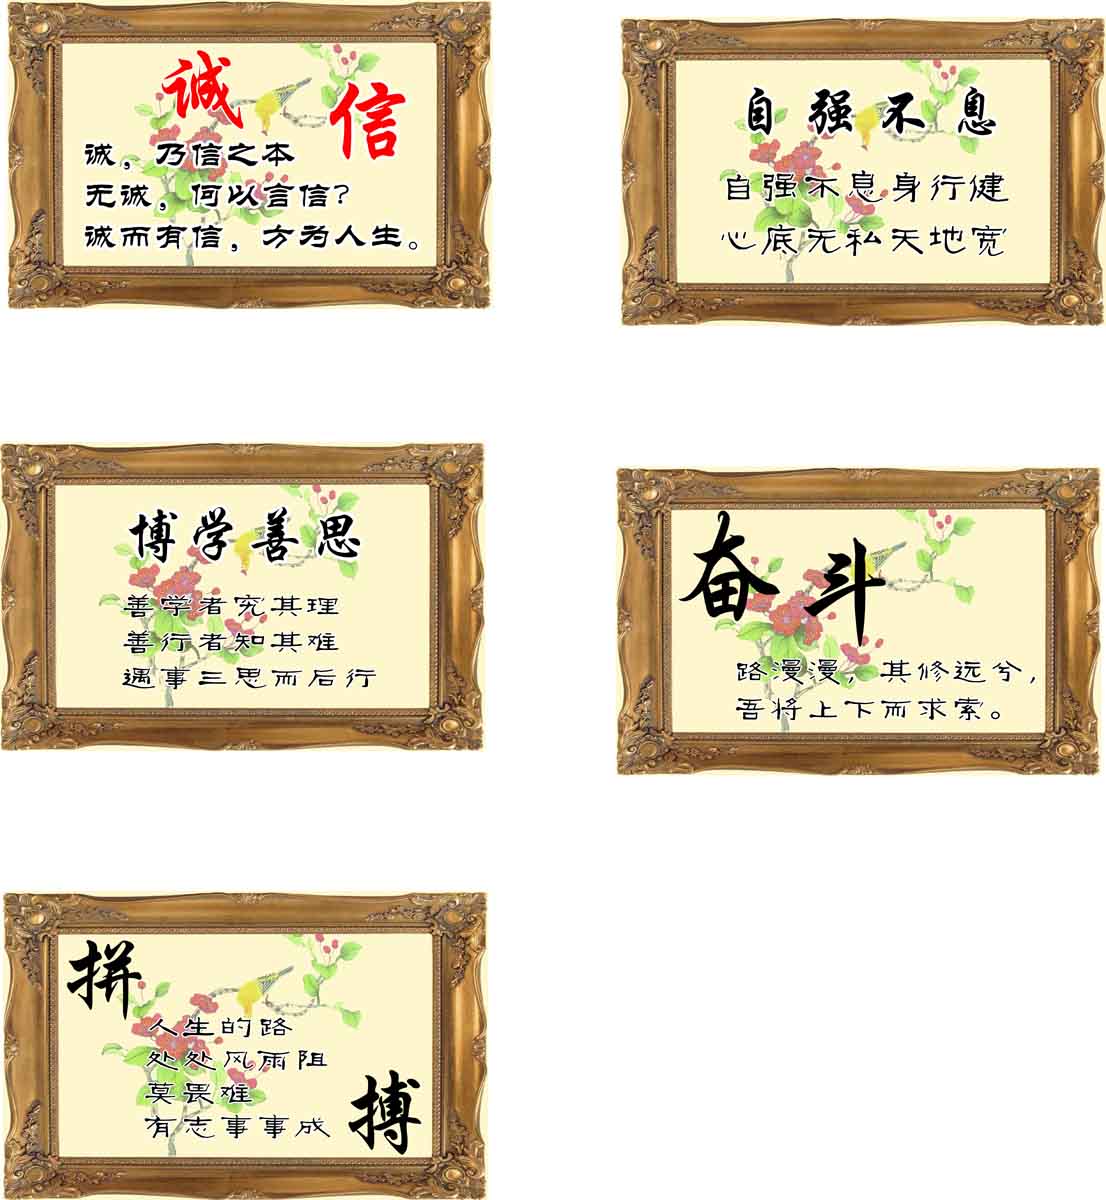 诚信
诚，乃信之本
无诚，何以言信？
诚而有信，方为人生。
自强不息
自强不息身行健
心底无私天地宽
博学善思
善学者究其理
善行者知其难
遇事三思而后行
奋斗
路漫漫，其修远兮，
吾将上下而求索。
拼搏
人生的路
处处风雨阻
莫畏难
有志事事成